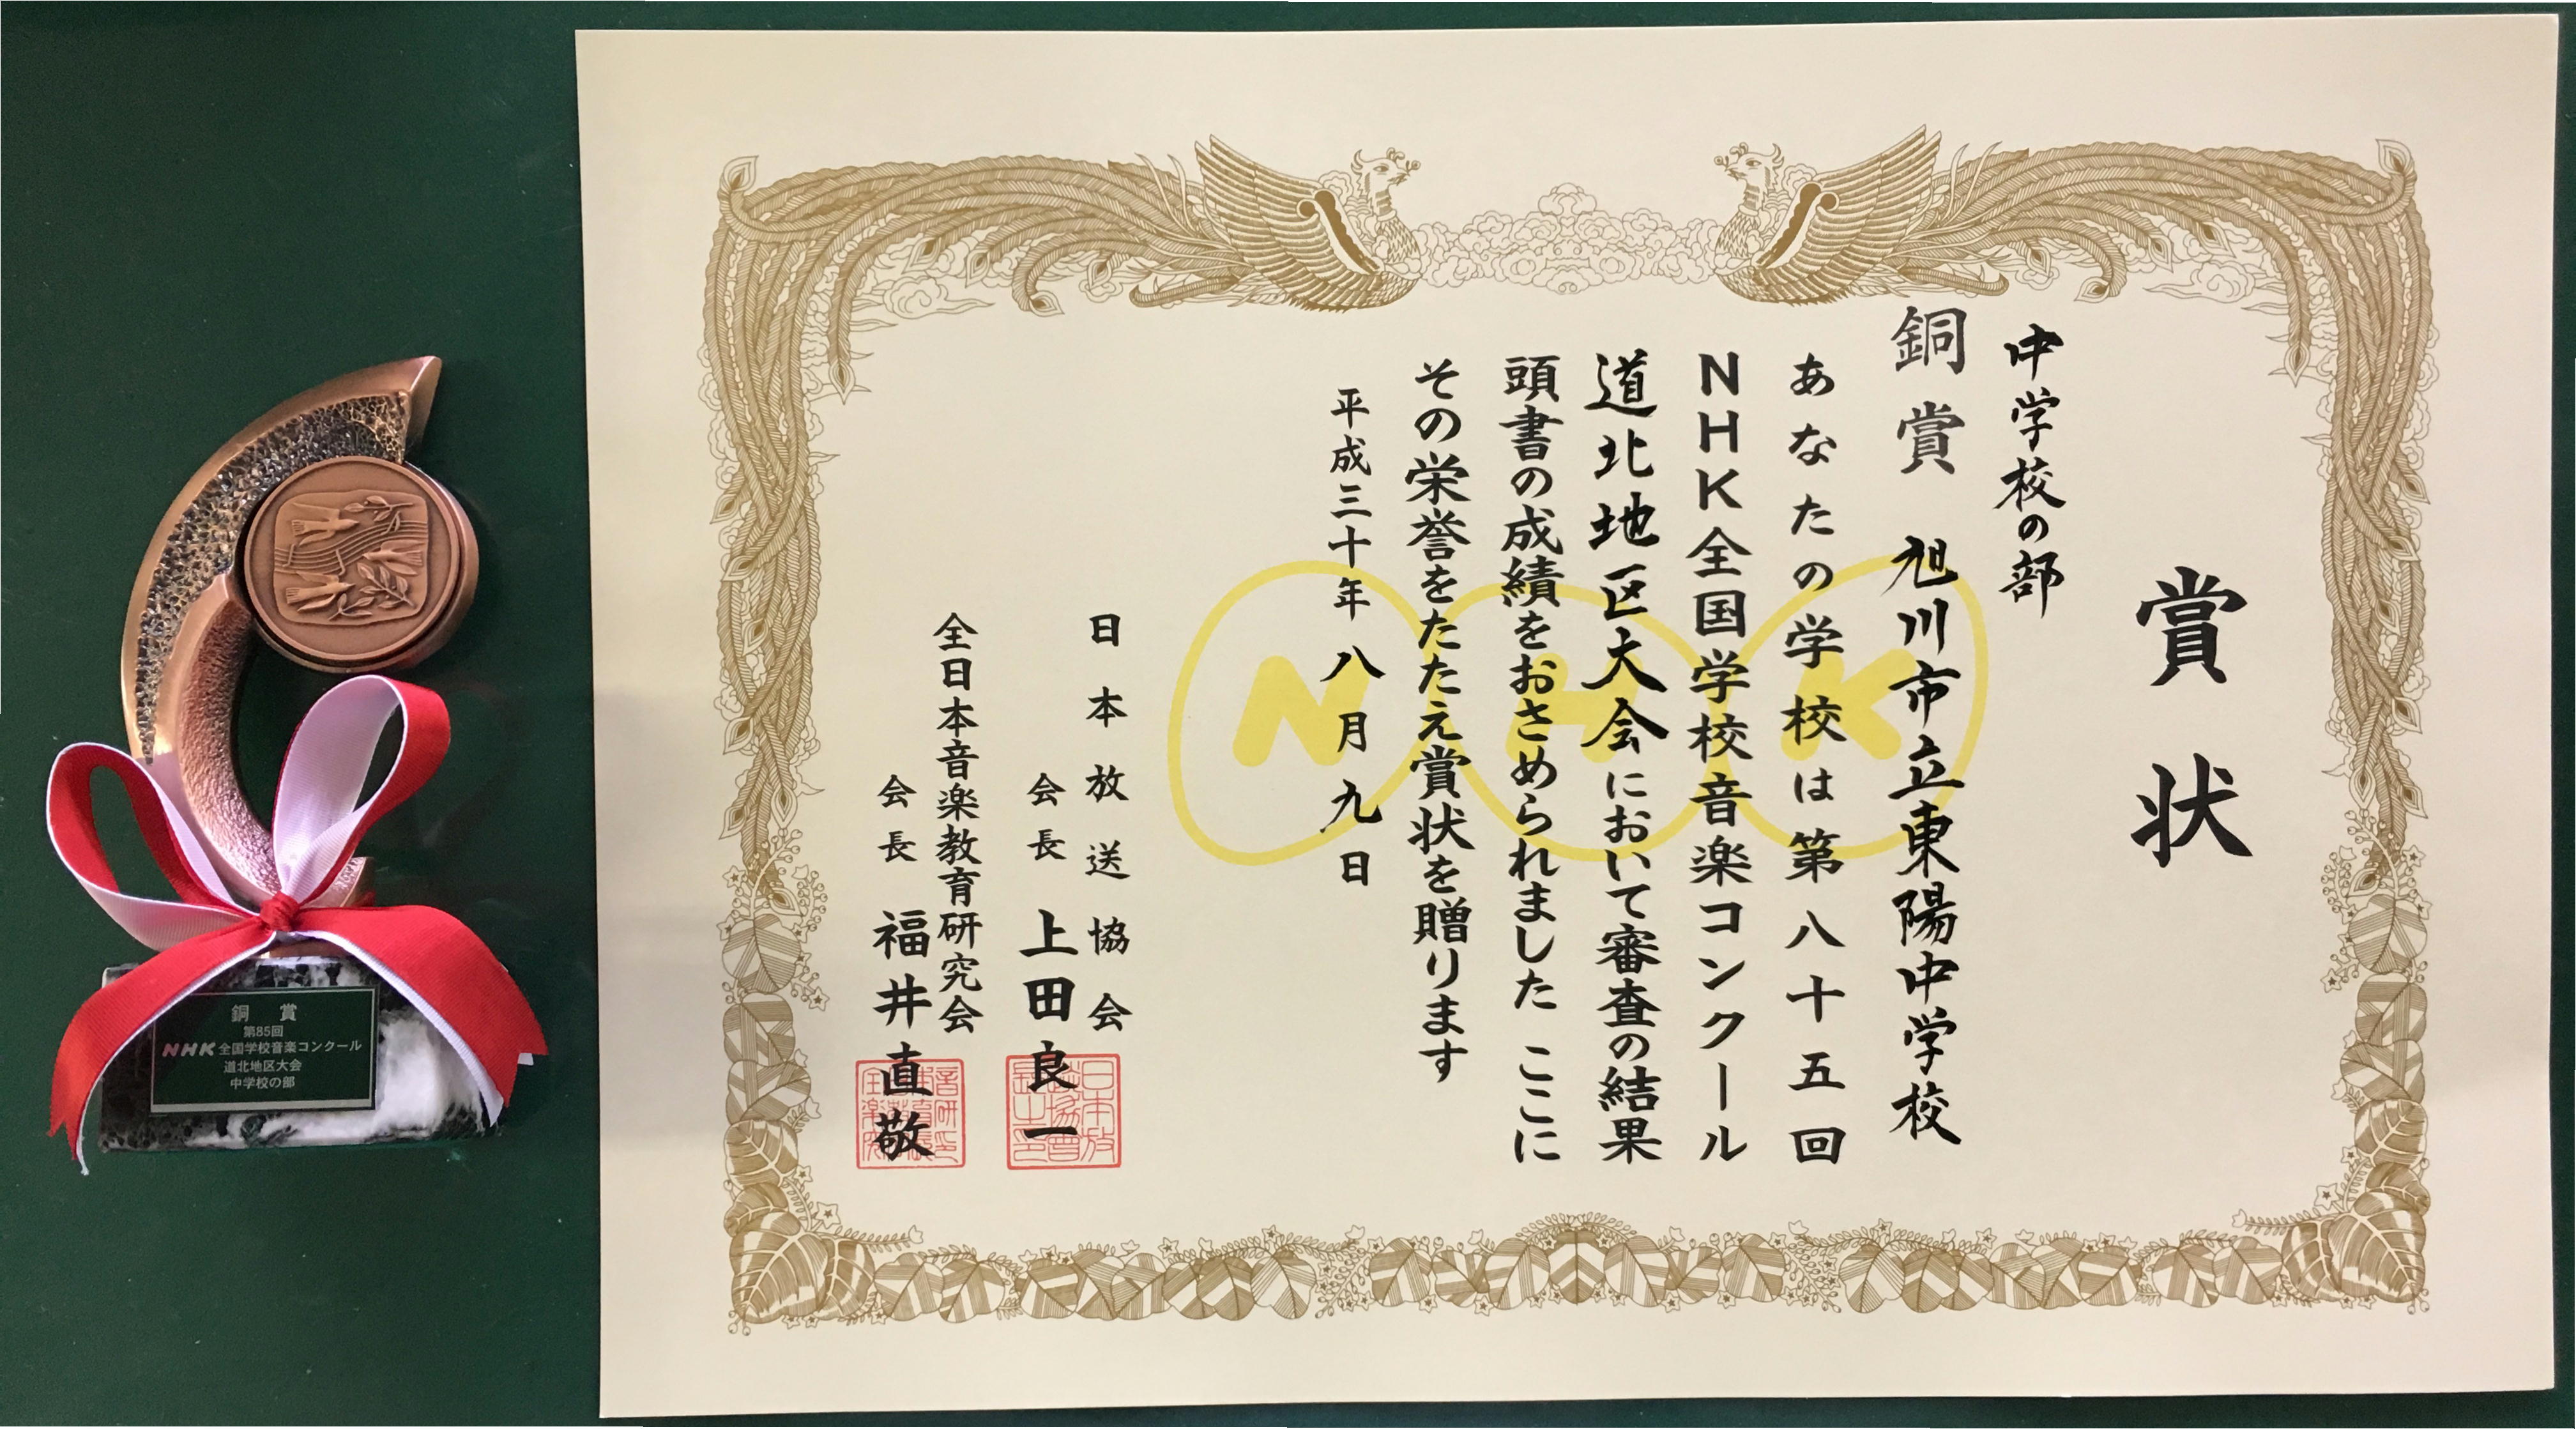 賞状
中学校の部
銅賞 旭川市立東陽中学校
あなたの学校は第八十五回
NHK全国学校音楽コンクール
道北地区大会において審査の結果
頭書の成績をおさめられました ここに
その栄誉をたたえ賞状を贈ります
平成三十年八月九日
日本放送協会
会長 上田良一
全日本音楽教育研究会
会長 福井直敬
NHK
銅賞
第85回
NHK全国学校音楽コンクール
道北地区大会
中学校の部